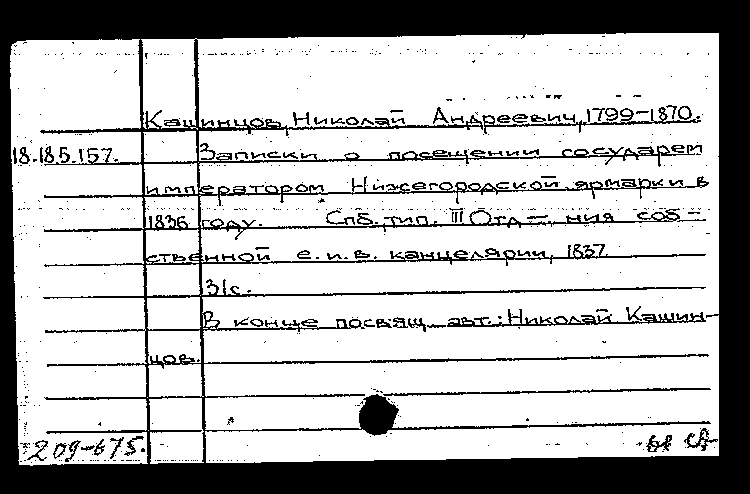 Кашинцов, Николай Андреевич, 1799-1870.
18.185.157. Записки о посещении государем
императором Нижегородской ярмарки в
1836 году. Спб., тип. III Отд-ния соб-
ственной е.и.в. канцелярии, 1837.
31с.
В конце посвящ. авт.: Николай Кашин-
цов.
209-675.